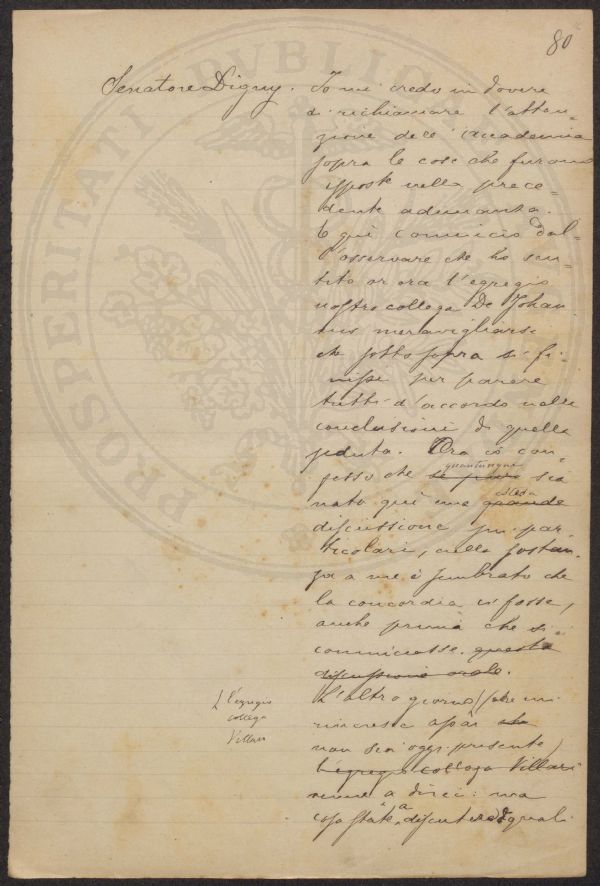 80
Senatore Digny. Io mi credo in dovere
di richiamare l'atten-
zione dell'accademia
sopra le cose che furono
esposte nella prece-
dente adunanza.
E quì comincio dal-
l'osservare che ho sen-
tito or ora l'egregio
nostro collega De Johan-
nis meravigliarsi
che sotto sopra si fi-
nisse per parere
tutti d'accordo nelle
conclusioni di quella
seduta. Ora io con-
fesso che se pure quantunque sia
nata quì una grande
discussione su par-
ticolari, nella sostan-
za a me è sembrato che
la concordia ci fosse,
anche prima che si
cominciasse questa
discussione orale.
L'altro giorno (che mi
rincresce assai
non sia oggi presente)
l'egregio collega Villari
l'egregio
collega
Villari
venne a dirci: ma
cosa state a discutere? quali
PROSPERITATI PVBLICAE